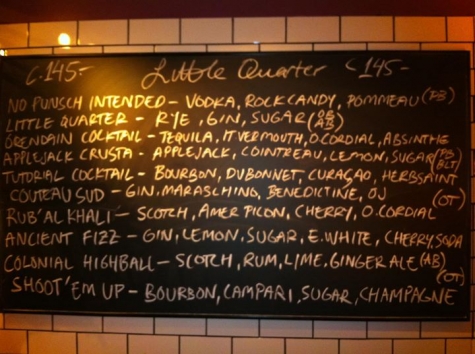 C.145:- Little Quarter C 145-
NO PUNSCH INTENDED - VODKA, ROCK CANDY, POMMEAU (PB)
LITTLE QUARTER - RYE, GIN, SUGAR (OB AB)
ORENDAIN COCKTAIL - TEQUILA, IT VERMOUTH, O.CORDIAL, ABSINTHE
APPLEJACK CRUSTA - APPLEJACK, COINTREAU, LEMON, SUGAR
TUTORIAL COCKTAIL - BOURBON, DUBONNET, CURAÇAO, HERBSAINT
COUTEAU SUD - GIN, MARASCHINO, BENEDICTINE, OJ (OT)
RUB'AL KHALI - SCOTCH, AMER PICON, CHERRY, O.CORDIAL
ANCIENT FIZZ - GIN, LEMON, SUGAR, E.WHITE, CHERRY, SODA
COLONIAL HIGHBALL - SCOTCH, RUM, LIME, GINGER ALE (AB) (OT)
SHOOT'EM UP - BOURBON, CAMPARI, SUGAR, CHAMPAGNE